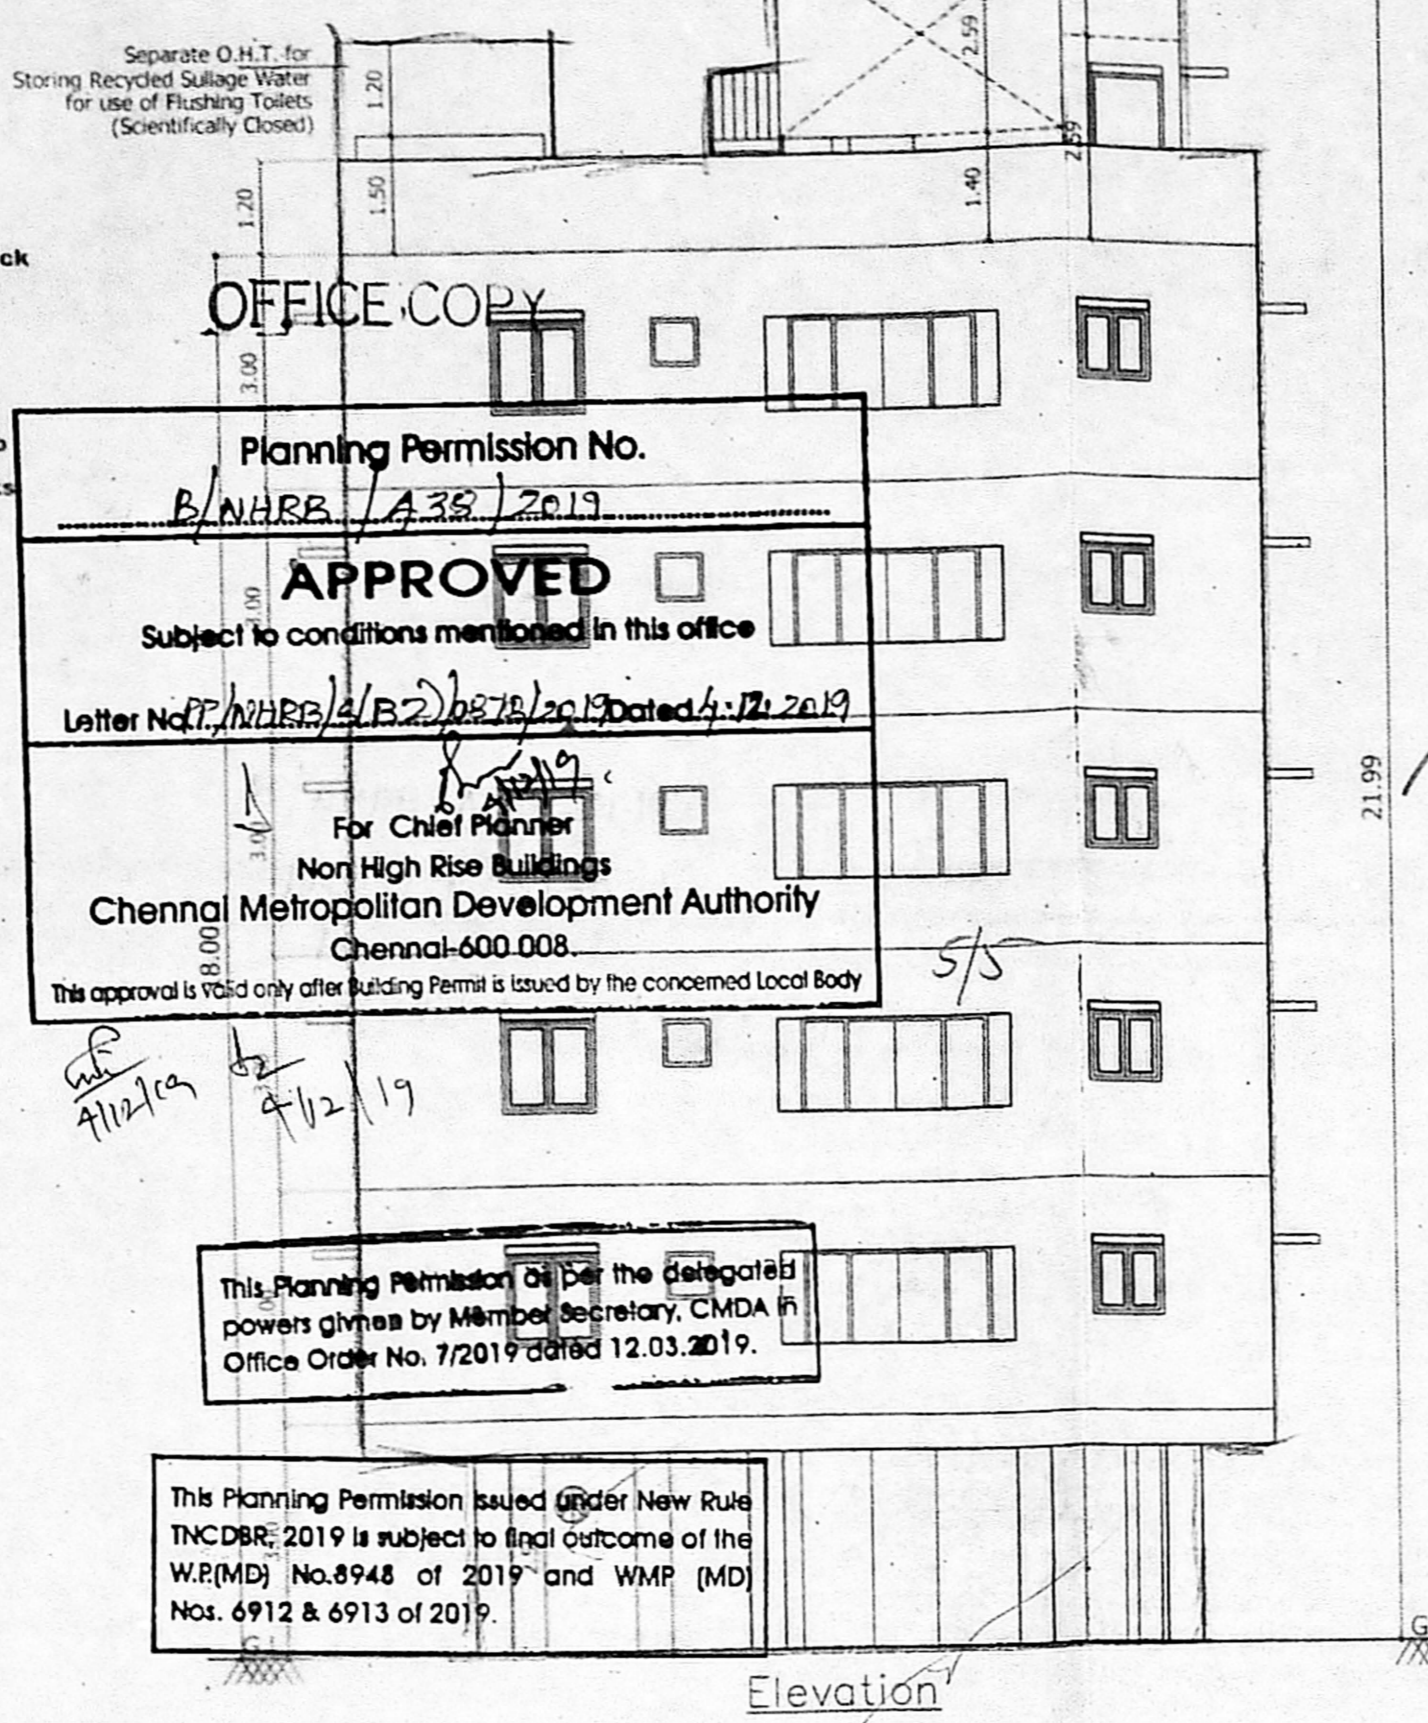 Separate O.H.T. for
Storing Recycled Sullage Water
for use of Flushing Toilets
(Scientifically Closed)
1.20
2.59
2.59
1.20
1.50
1.40
ck
OFFICE COPY
3.00
Planning Permission No.
B/NHRB/A38/2019
APPROVED
3.00
Subject to conditions mentioned in this office
Letter No. PP/NHRB/S(B2)/0878/2019 Dated 4.12.2019
4/12/19
21.99
3.00
For Chief Planner
Non High Rise Buildings
Chennai Metropolitan Development Authority
Chennai-600 008.
8.00
5/5
This approval is valid only after Building Permit is issued by the concerned Local Body
4/12/19
4/12/19
This Planning Permission as per the delegated
powers givnen by Member Secretary, CMDA in
Office Order No. 7/2019 dated 12.03.2019.
This Planning Permission issued under New Rule
TNCDBR, 2019 is subject to final outcome of the
W.P.(MD) No.8948 of 2019 and WMP (MD)
Nos. 6912 & 6913 of 2019.
G
G
Elevation